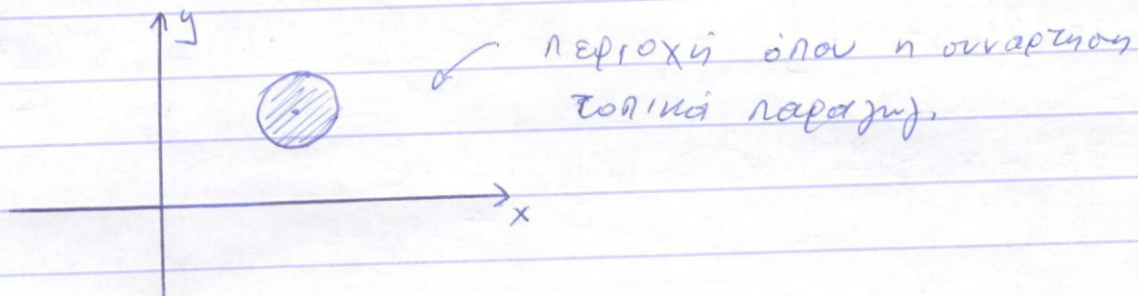 y
περιοχή όπου η συνάρτηση
τοπικά παραγωγ.
x